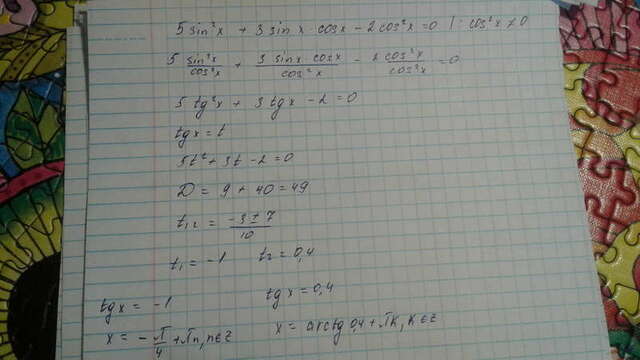 5 sin²x + 3 sin x · cosx − 2cos²x = 0 | : cos²x ≠ 0
5 sin²x/cos²x + 3 sinx cosx/cos²x − 2cos²x/cos²x = 0
5 tg²x + 3 tgx − 2 = 0
tgx = t
5t² + 3t − 2 = 0
D = 9 + 40 = 49
t₁,₂ = −3 ± 7/10
t₁ = −1 t₂ = 0,4
tgx = −1 tgx = 0,4
x = −π/4 + πn, n∈z x = arctg 0,4 + πk, k∈z